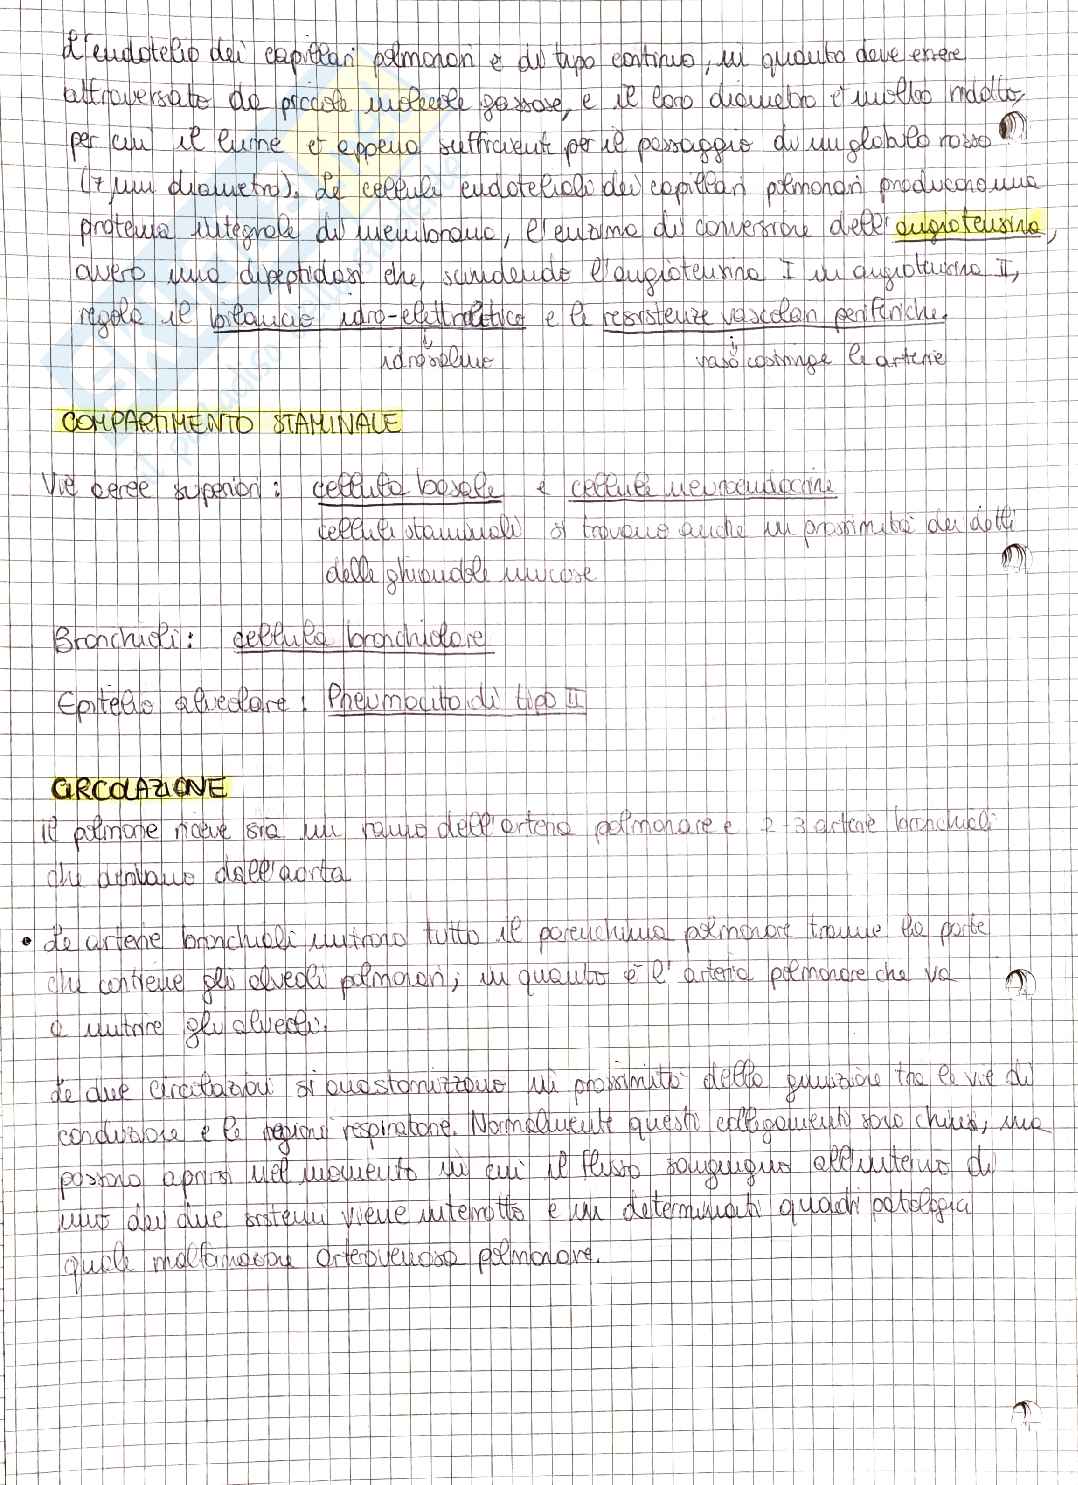 L'endotelio dei capillari polmonari è di tipo continuo, in quanto deve essere
attraversato da piccole molecole gassose, e il loro diametro è molto ridotto,
per cui il lume è appena sufficiente per il passaggio di un globulo rosso
(7 µm diametro). Le cellule endoteliali dei capillari polmonari producono una
proteina integrale di membrana, l'enzima di conversione dell'angiotensina,
ovvero una dipeptidasi che, scindendo l'angiotensina I in angiotensina II,
regola il bilancio idro-elettrolitico e le resistenze vascolari periferiche.
idrosaline vaso costringe le arterie
COMPARTIMENTO STAMINALE
Vie aeree superiori: cellula basale e cellule neuroendocrine
cellule staminali si trovano anche in prossimità dei dotti
delle ghiandole mucose
Bronchioli: cellula bronchiolare
Epitelio alveolare: Pneumocito di tipo II
CIRCOLAZIONE
il polmone riceve sia un ramo dell'arteria polmonare e 2-3 arterie bronchiali
che derivano dall'aorta
• Le arterie bronchiali nutrono tutto il parenchima polmonare tranne la parte
che contiene gli alveoli polmonari; in quanto è l'arteria polmonare che va
a nutrire gli alveoli.
Le due circolazioni si anastomizzano in prossimità della giunzione tra le vie di
conduzione e le regioni respiratorie. Normalmente questi collegamenti sono chiusi, ma
possono aprirsi nel momento in cui il flusso sanguigno all'interno di
uno dei due sistemi viene interrotto e in determinati quadri patologia
quale malformazione arterovenosa polmonare.